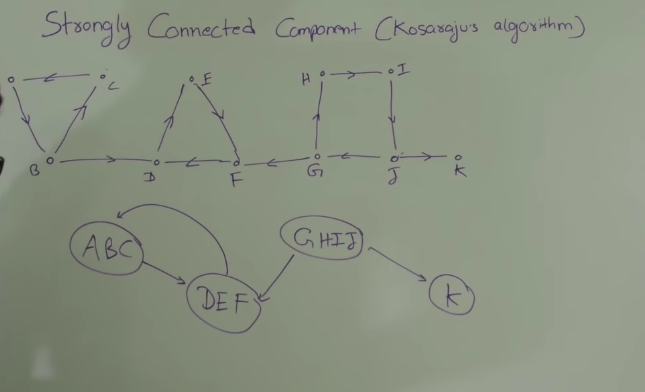 Strongly Connected Component (Kosaraju's algorithm)
C E H I
B D F G J K
ABC GHIJ
DEF K